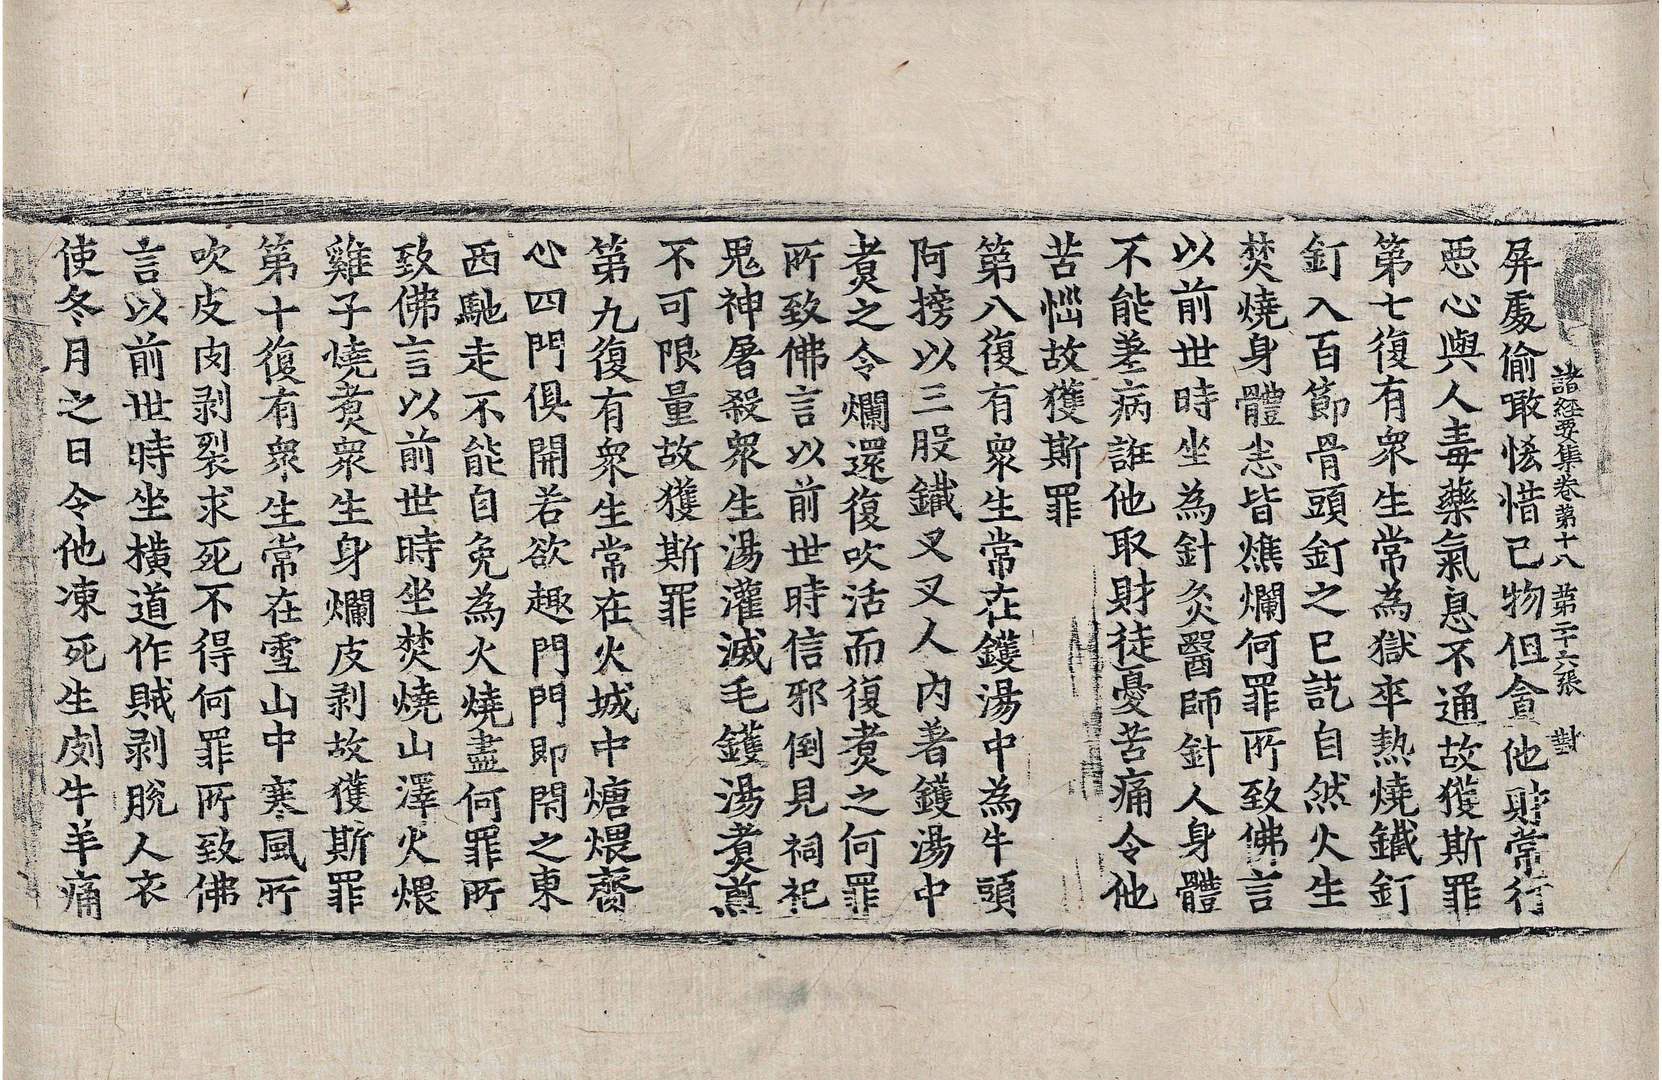 諸經要集卷第十八 第二十六張 對
屏處偷噉悋惜己物但貪他財常行
惡心與人毒藥氣息不通故獲斯罪
第七復有衆生常為獄卒熱燒鐵釘
釘入百節骨頭釘之巳訖自然火生
焚燒身體悉皆燋爛何罪所致佛言
以前世時坐為針灸醫師針人身體
不能差病誑他取財徒憂苦痛令他
苦惱故獲斯罪
第八復有衆生常在鑊湯中為牛頭
阿搒以三股鐵叉叉人內著鑊湯中
煑之令爛還復吹活而復煑之何罪
所致佛言以前世時信邪倒見祠祀
鬼神屠殺衆生湯灌滅毛鑊湯煑煎
不可限量故獲斯罪
第九復有衆生常在火城中煻煨齊
心四門俱開若欲趣門門即閇之東
西馳走不能自免為火燒盡何罪所
致佛言以前世時坐焚燒山澤火煨
雞子燒煑衆生身爛皮剥故獲斯罪
第十復有衆生常在雪山中寒風所
吹皮肉剥裂求死不得何罪所致佛
言以前世時坐橫道作賊剥脫人衣
使冬月之日令他凍死生剥牛羊痛